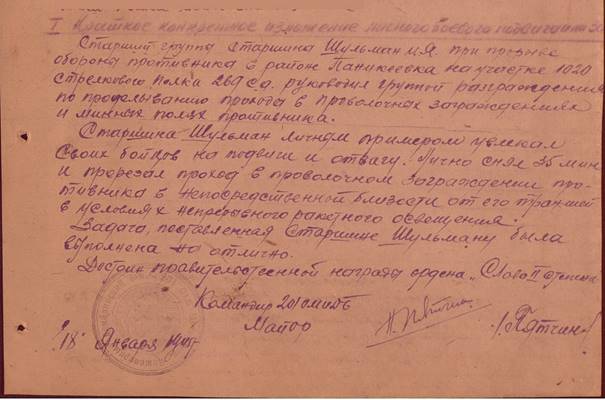 I Краткое конкретное изложение личного боевого подвига или
Старший группы старшина Шульман М.Я. при прорыве
обороны противника в район Паникеевка на участке 1020
стрелкового полка 269 с.д. руководил группой разграждения
по проделыванию прохода в проволочных заграждениях
и минных полях противника.
Старшина Шульман личным примером увлекал
своих бойцов на подвиги и отвагу. Лично снял 35 мин
и прорезал проход в проволочном заграждении про-
тивника в непосредственной близости от его траншей
в условиях непрерывного ракетного освещения.
Задача, поставленная старшине Шульману была
выполнена на отлично.
Достоин правительственной награды ордена „Слава II степени
Командир
Майор
/Пятчин/
"18" Января